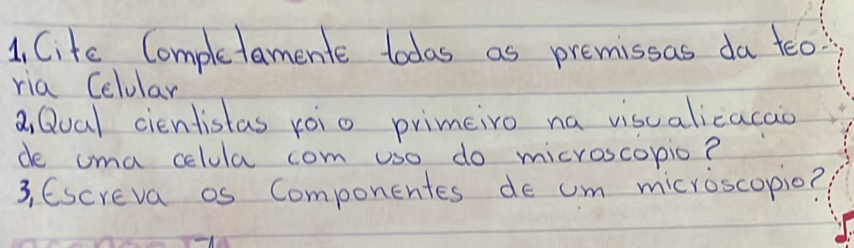 1, Cite Completamente todas as premissas da teo-
ria Celular
2, Qual cientistas foi o primeiro na visualicacao
de uma celula com uso do microscópio?
3, Escreva os Componentes de um micróscopio?